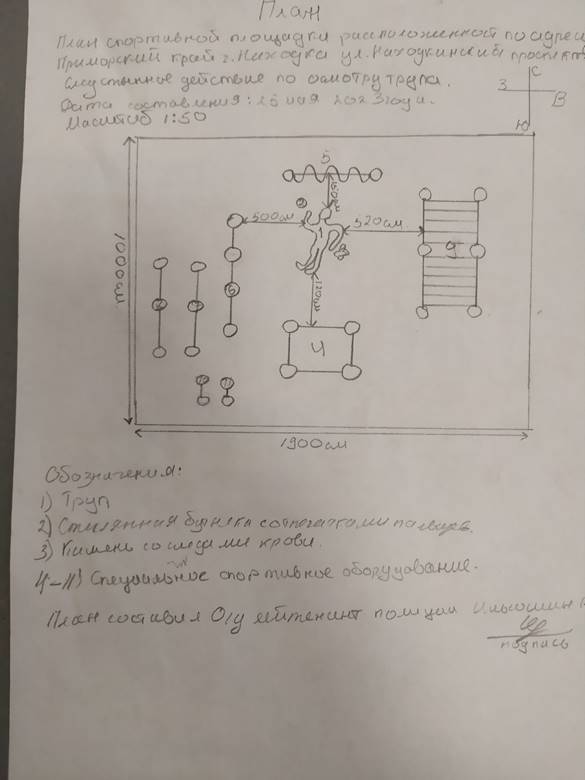 План
План спортивной площадки расположенной по адрес
Приморский край г. Находка ул. Находкинский проспект
следственное действие по осмотру трупа.
Дата составления: 26 мая 2023 года.
Масштаб 1:50
С
З
В
Ю
5
2
500см
1
520см
3
9
1000см
6
120см
4
1900см
Обозначения:
1) Труп
2) Стеклянная бутылка с отпечатками пальцев.
3) Камень со следами крови.
4-11) Специальное спортивное оборудование.
План составил О/у лейтенант полиции
подпись